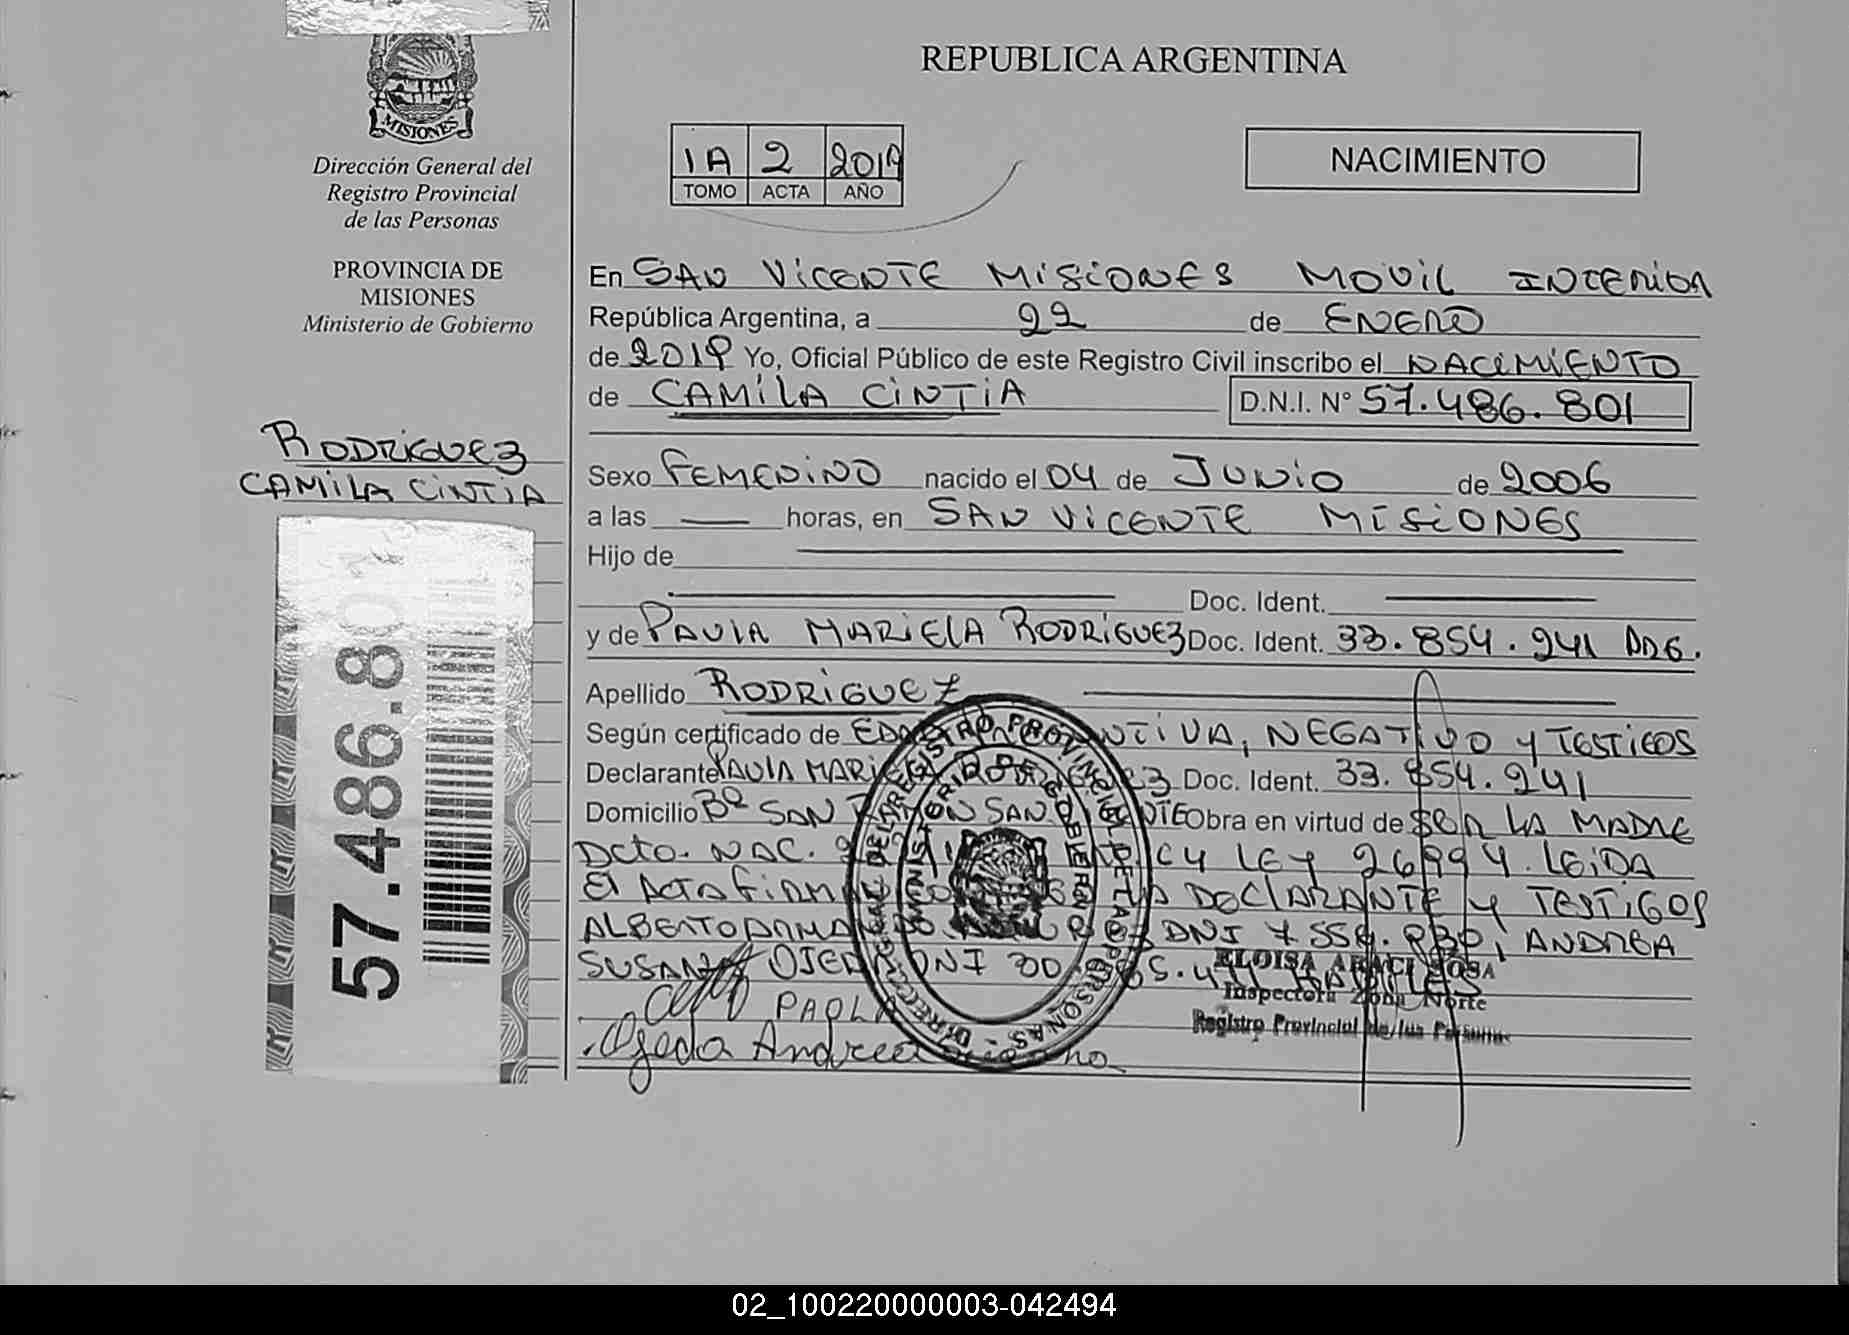 REPUBLICA ARGENTINA
MISIONES
Dirección General del
Registro Provincial
de las Personas
PROVINCIA DE
MISIONES
Ministerio de Gobierno
1A 2 2019
TOMO ACTA AÑO
NACIMIENTO
En SAN VICENTE MISIONES MOVIL
República Argentina, a 22 de ENERO
de 2019 Yo, Oficial Público de este Registro Civil inscribo el NACIMIENTO
de CAMILA CINTIA D.N.I. N° 57.486.801
RODRIGUEZ
CAMILA CINTIA
Sexo FEMENINO nacido el 04 de JUNIO de 2006
a las — horas, en SAN VICENTE MISIONES
Hijo de
Doc. Ident.
y de PAULA MARIELA RODRIGUEZ Doc. Ident. 33.854.241 ARG.
Apellido RODRIGUEZ
Según certificado de NEGATIVO y TESTIGOS
Declarante PAULA Doc. Ident. 33.854.241
Domicilio Bº SAN SAN Obra en virtud de SER LA MADRE
Dcto. NAC. LEY 26994. LEIDA
El ACTA LA DECLARANTE y TESTIGOS
ALBERTO DNI ANDREA
SUSANA OJEDA DNI
ELOISA SOSA
Inspectora Zona Norte
Registro Provincial de las Personas
PAOLA
Ojeda Andrea
DIRECCION GENERAL DEL REGISTRO PROVINCIAL DE LAS PERSONAS
MINISTERIO DE GOBIERNO
57.486.801
02_100220000003-042494